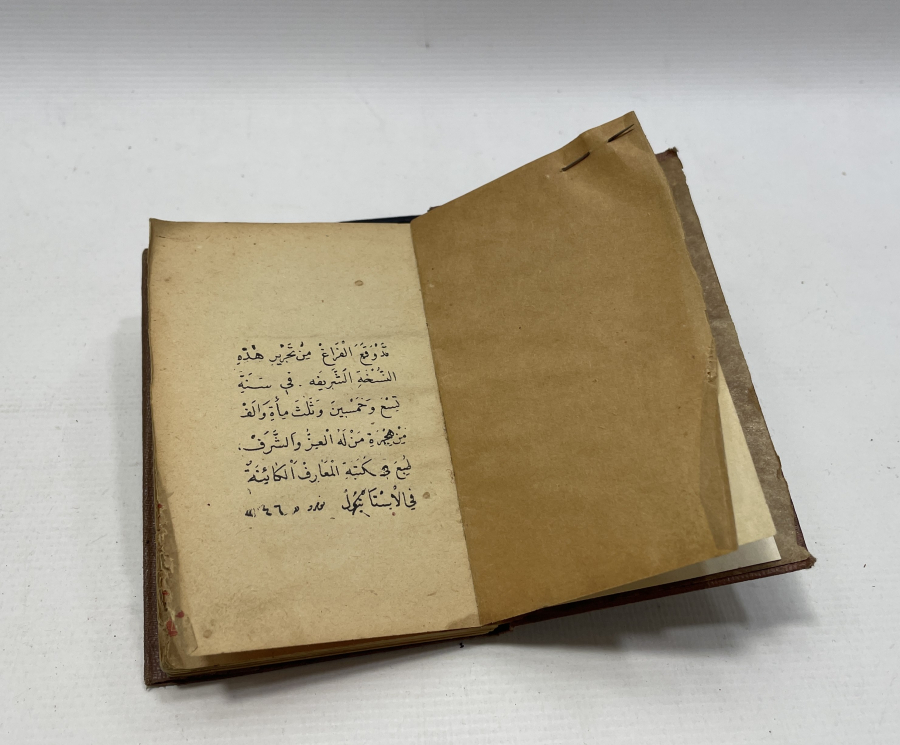 قَدْ وَقَعَ الْفَرَاغْ مِنْ تَحْرِيرِ هٰذِهِ
النُّسْخَةِ الشَّرِيفَه . في سَنَةِ
تِسْعٍ وَخَمْسِينَ وَثَلٰثَ مِأَةٍ وَالَفْ
مِنْ هِجْرَةِ مَنْ لَهُ الْعِزُّ وَالشَّرَفْ .
طُبِعَ مَكْتَبَةِ الْمَعَارِفْ الْكَائِنَةُ
فِي الْاِسْتَانْبُولُ ٤٦